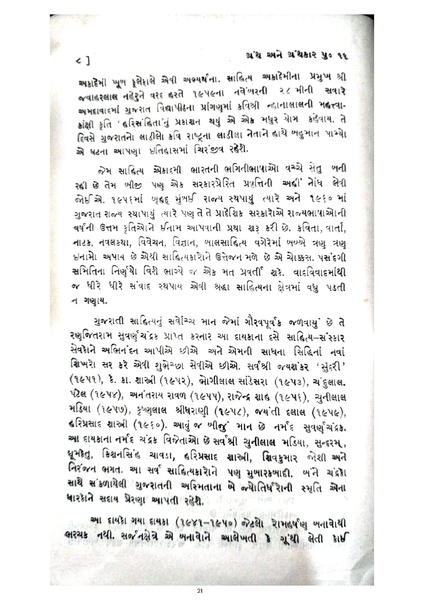 ૮ ]
ગ્રંથ અને ગ્રંથકાર પુ૦ ૧૧
અકાદેમી ખૂબ ફૂલેફાલે એવી અભ્યર્થના. સાહિત્ય અકાદેમીના પ્રમુખ શ્રી
જવાહરલાલ નહેરુને વરદ હસ્તે ૧૯૫૯ના નવેમ્બરની ૨૮મીની સવારે
અમદાવાદમાં ગુજરાત વિદ્યાપીઠના પ્રાંગણમાં કવિશ્રી ન્હાનાલાલની મહત્ત્વા-
કાંક્ષી કૃતિ ‘હરિસંહિતા’નું પ્રકાશન થયું એ એક મધુર યોગ કહેવાય. તે
દિવસે ગુજરાતનો લાડીલો કવિ રાષ્ટ્રના લાડીલા નેતાને હાથે બહુમાન પામ્યો
એ ઘટના આપણા ઇતિહાસમાં ચિરંજીવ રહેશે.
જેમ સાહિત્ય એકાદમી ભારતની ભગિનીભાષાઓ વચ્ચે સેતુ બની
રહી છે તેમ બીજી પણ એક સરકારપ્રેરિત પ્રવૃત્તિની અહીં નોંધ લેવી
જોઈએ. ૧૯૫૬માં બૃહદ્ મુંબઈ રાજ્ય સ્થપાયું ત્યારે અને ૧૯૬૦માં
ગુજરાત રાજ્ય સ્થાપાયું ત્યારે પણ તે તે પ્રાદેશિક સરકારોએ રાજ્યભાષાઓની
વર્ષની ઉત્તમ કૃતિઓને ઇનામ આપવાની પ્રથા શરૂ કરી છે. કવિતા, વાર્તા,
નાટક, નવલકથા, વિવેચન, વિજ્ઞાન, બાલસાહિત્ય વગેરેમાં બબ્બે ત્રણ ત્રણ
ઇનામો અપાય છે એથી સાહિત્યકારોને ઉત્તેજન મળે છે એ ચોક્કસ. પસંદગી
સમિતિના નિર્ણયો વિશે ભાગ્યે જ એક મત પ્રવર્તી શકે. વાદવિવાદમાંથી
જ ધીરે ધીરે સંવાદ સ્થપાય એવી શ્રદ્ધા સાહિત્યના ક્ષેત્રમાં વધુ પડતી
ન ગણાય.
ગુજરાતી સાહિત્યનું સર્વોચ્ચ માન જેમાં ગૌરવપૂર્વક જળવાયું છે તે
રણજિતરામ સુવર્ણચંદ્રક પ્રાપ્ત કરનાર આ દાયકાના દસે સાહિત્ય-સંસ્કાર
સેવકોને અભિનંદન આપીએ છીએ અને એમની સાધના સિદ્ધિનાં નવાં
શિખરો સર કરે એવી શુભેચ્છા સેવીએ છીએ. સર્વશ્રી જયશંકર ‘સુંદરી’
(૧૯૫૧), કે. કા. શાસ્ત્રી (૧૯૫૨), ભોગીલાલ સાંડેસરા (૧૯૫૩), ચંદુલાલ
પટેલ (૧૯૫૪), અનંતરાય રાવળ (૧૯૫૫), રાજેન્દ્ર શાહ (૧૯૫૬), ચુનીલાલ
મડિયા (૧૯૫૭), કૃષ્ણલાલ શ્રીધરાણી (૧૯૫૮), જયંતી દલાલ (૧૯૫૯),
હરિપ્રસાદ શાસ્ત્રી (૧૯૬૦). આવું જ બીજું માન છે નર્મદ સુવર્ણચંદ્રક.
આ દાયકાના નર્મદ ચંદ્રક વિજેતાઓ છે સર્વશ્રી ચુનીલાલ મડિયા, સુન્દરમ્,
ધૂમકેતુ, કિશનસિંહ ચાવડા, હરિપ્રસાદ શાસ્ત્રી, શિવકુમાર જોશી અને
નિરંજન ભગત. આ સર્વ સાહિત્યકારોને પણ મુબારકબાદી. બંને ચંદ્રકો
સાથે સંકળાયેલી ગુજરાતની અસ્મિતાના એ જ્યોતિર્ધરોની સ્મૃતિ એના
ધારકોને સદાય પ્રેરણા આપતી રહેશે.
આ દાયકો ગયા દાયકા (૧૯૪૧–૧૯૫૦) જેટલો રોમહર્ષણ બનાવોથી
ભારચક નથી. સર્જનક્ષેત્રે એ બનાવોને આલેખતી કે ગૂંથી લેતી કોઈ
21